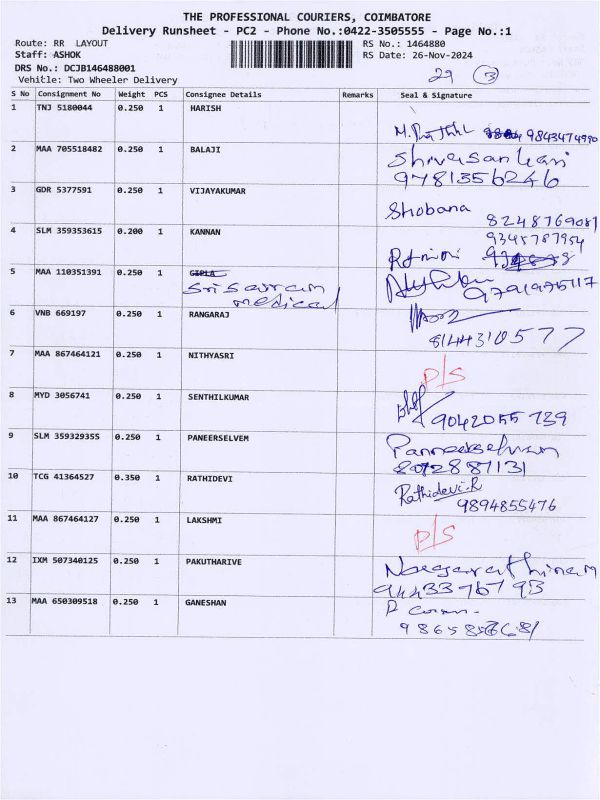 THE PROFESSIONAL COURIERS, COIMBATORE
Delivery Runsheet - PC2 - Phone No.:0422-3505555 - Page No.:1
Route: RR LAYOUT
RS No.: 1464880
Staff: ASHOK
RS Date: 26-Nov-2024
DRS No.: DCJB146488001
Vehicle: Two Wheeler Delivery
29 3
S No Consignment No Weight PCS Consignee Details Remarks Seal & Signature
1 TNJ 5180044 0.250 1 HARISH
9843474990
2 MAA 705518482 0.250 1 BALAJI
Shivasankari
9781356246
3 GDR 5377591 0.250 1 VIJAYAKUMAR
Shobana 8248769081
4 SLM 359353615 0.200 1 KANNAN
9345787954
5 MAA 110351391 0.250 1 CIPLA
Sri Sairam
medical
9791975117
6 VNB 669197 0.250 1 RANGARAJ
8144310577
7 MAA 867464121 0.250 1 NITHYASRI
P/S
8 MYD 3056741 0.250 1 SENTHILKUMAR
9042055739
9 SLM 359329355 0.250 1 PANEERSELVEM
Panneerselvam
8072887131
10 TCG 41364527 0.350 1 RATHIDEVI
Rathidevi.R
9894855476
11 MAA 867464127 0.250 1 LAKSHMI
P/S
12 IXM 507340125 0.250 1 PAKUTHARIVE
Naagarathinam
9443376793
13 MAA 650309518 0.250 1 GANESHAN